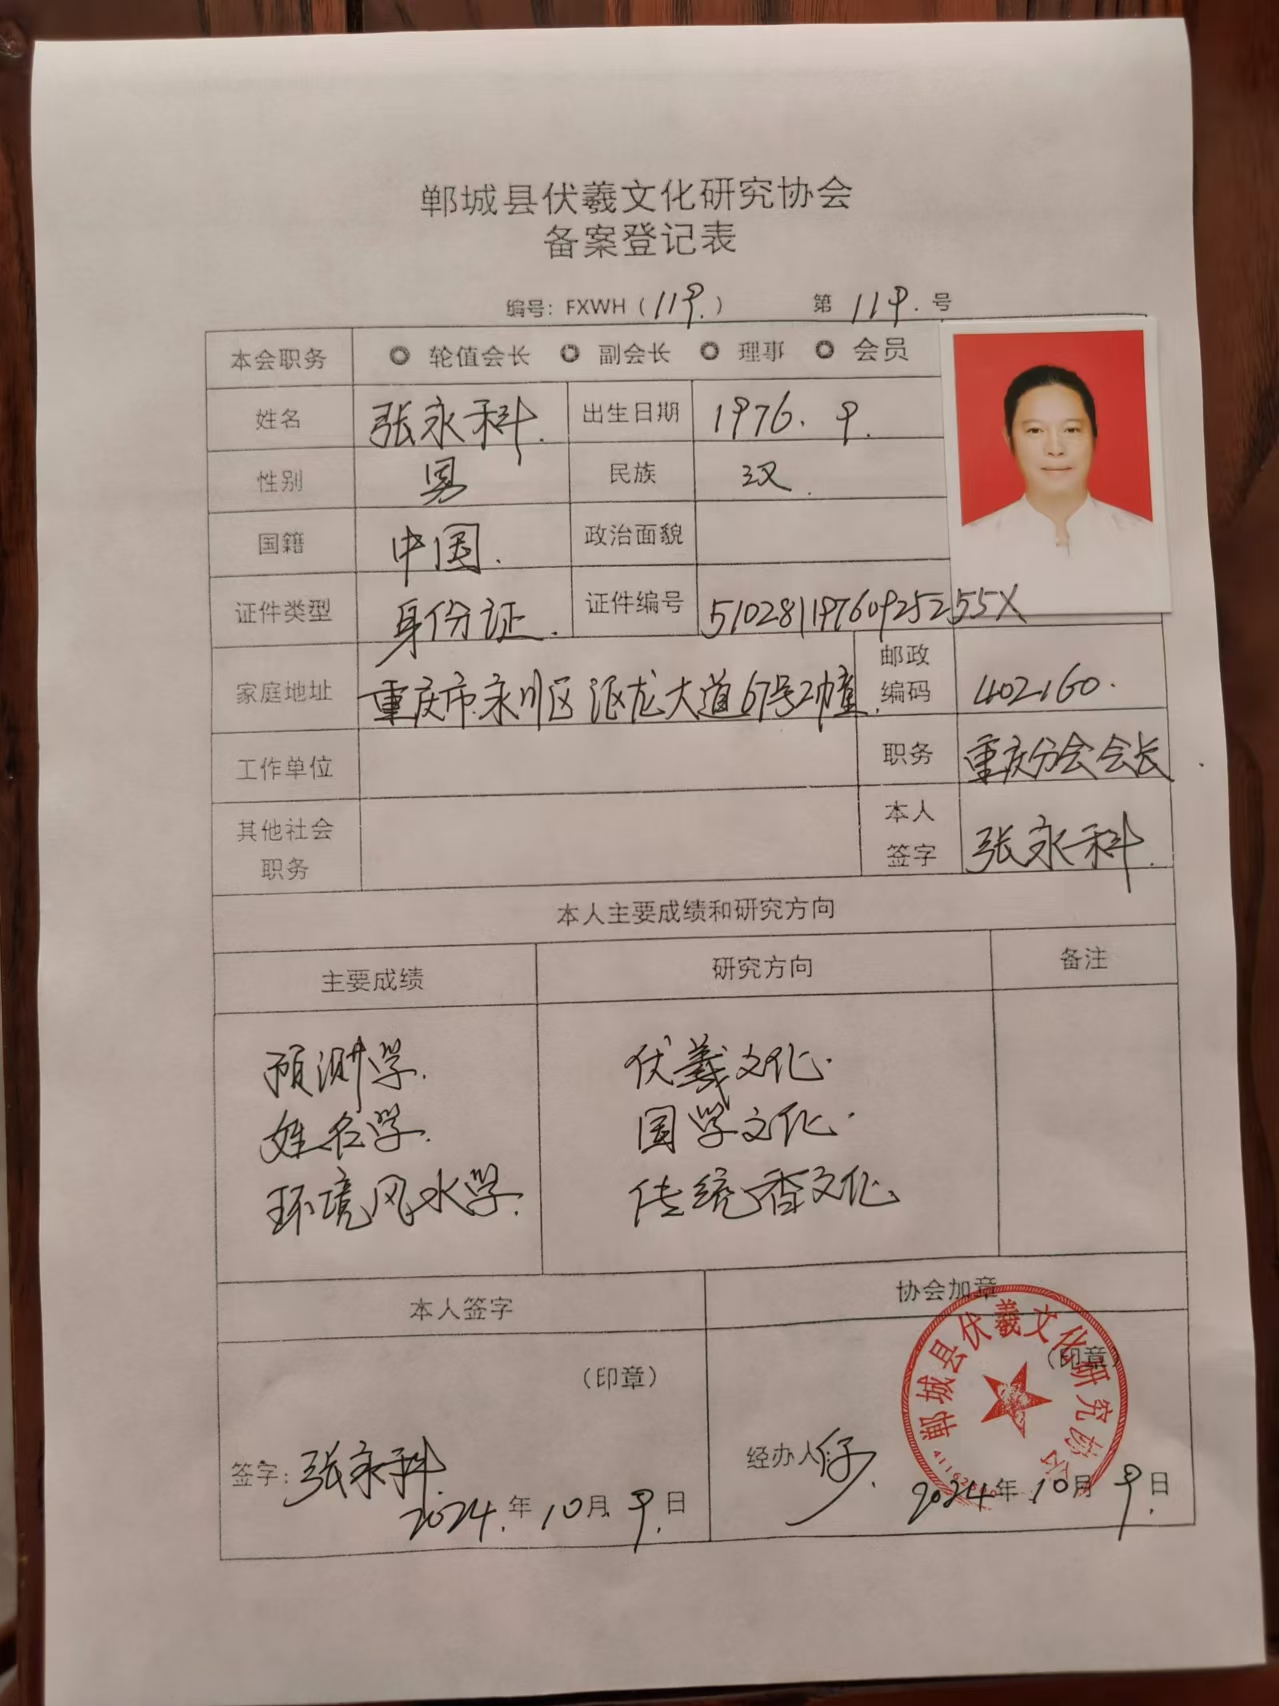 郸城县伏羲文化研究协会
备案登记表
编号：FXWH（119.） 第 119. 号
本会职务 轮值会长 副会长 理事 会员
姓名 张永科. 出生日期 1976. 9.
性别 男 民族 汉.
国籍 中国. 政治面貌
证件类型 身份证. 证件编号 51028119760925255X
家庭地址 重庆市永川区汇龙大道67号2幢. 邮政编码 402160.
工作单位 职务 重庆分会会长
其他社会职务 本人签字 张永科.
本人主要成绩和研究方向
主要成绩 研究方向 备注
预测学. 伏羲文化.
姓名学. 国学文化.
环境风水学. 传统香文化
本人签字 协会加章
（印章） （印章）
郸城县伏羲文化研究协会
签字：张永科 经办人
2024.年10月9.日 2024年10月9.日